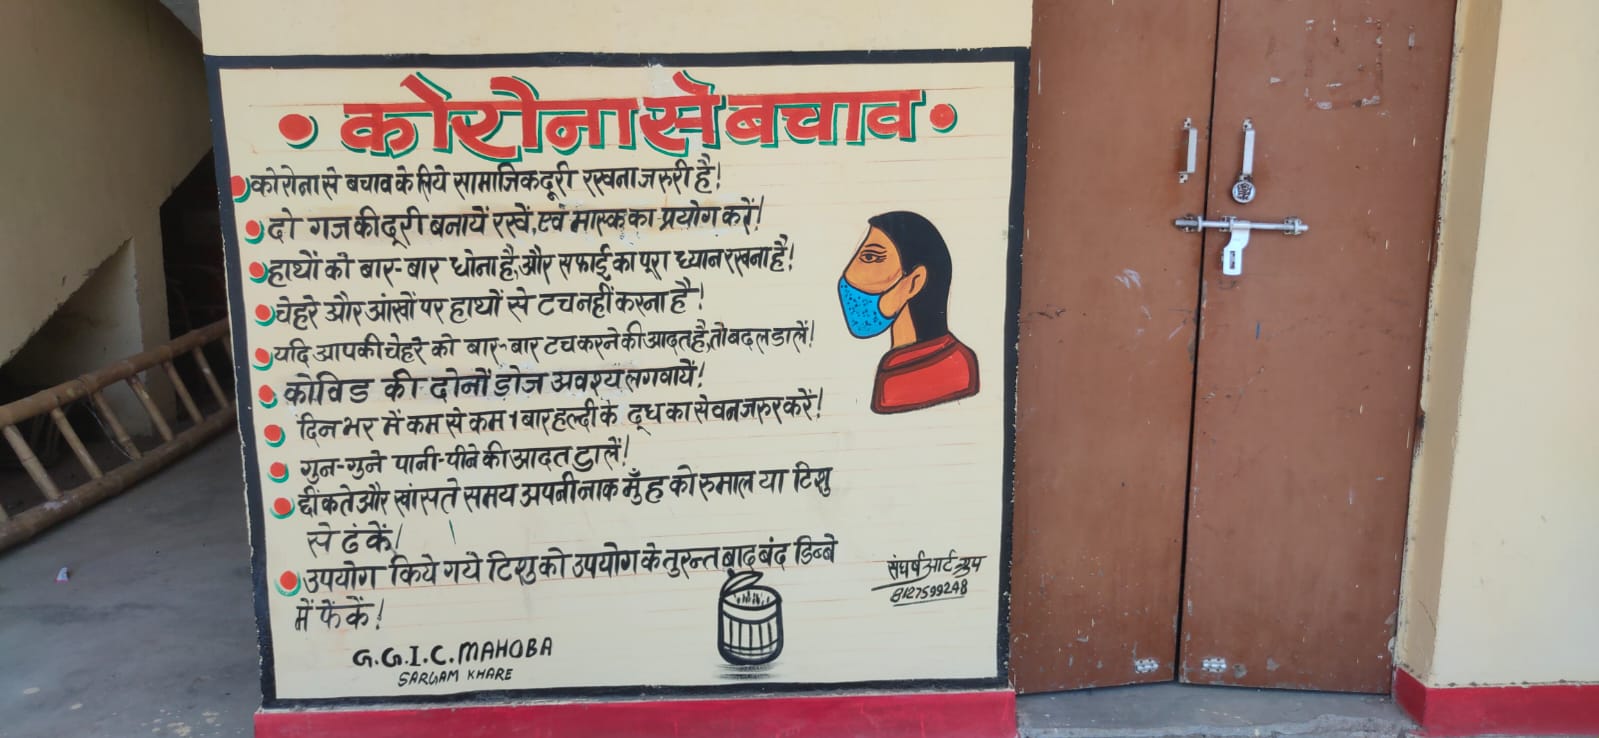 कोरोना से बचाव
कोरोना से बचाव के लिये सामाजिक दूरी रखना जरुरी है!
दो गज की दूरी बनायें रखें, एवं मास्क का प्रयोग करें!
हाथों को बार-बार धोना है, और सफाई का पूरा ध्यान रखना है!
चेहरे और आंखों पर हाथों से टच नहीं करना है!
यदि आपकी चेहरे को बार-बार टच करने की आदत है, तो बदल डालें!
कोविड की दोनों डोज अवश्य लगवायें!
दिन भर में कम से कम 1 बार हल्दी के दूध का सेवन जरुर करें!
गुन-गुने पानी-पीने की आदत डालें!
छींकते और खांसते समय अपनी नाक मुँह को रुमाल या टिशु
से ढंकें!
उपयोग किये गये टिशु को उपयोग के तुरन्त बाद बंद डिब्बे
में फेंकें!
संघर्ष आर्ट ग्रुप
8127599248
G.G.I.C. MAHOBA
SARGAM KHARE